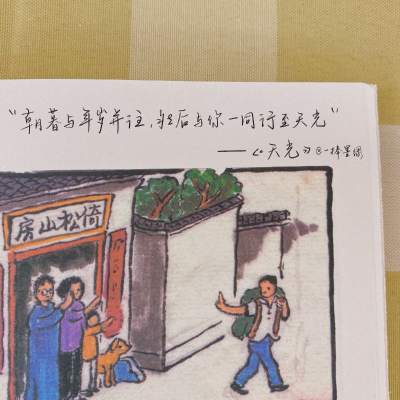 "朝暮与年岁并往,然后与你一同行至天光"
——《天光》
倚松山房